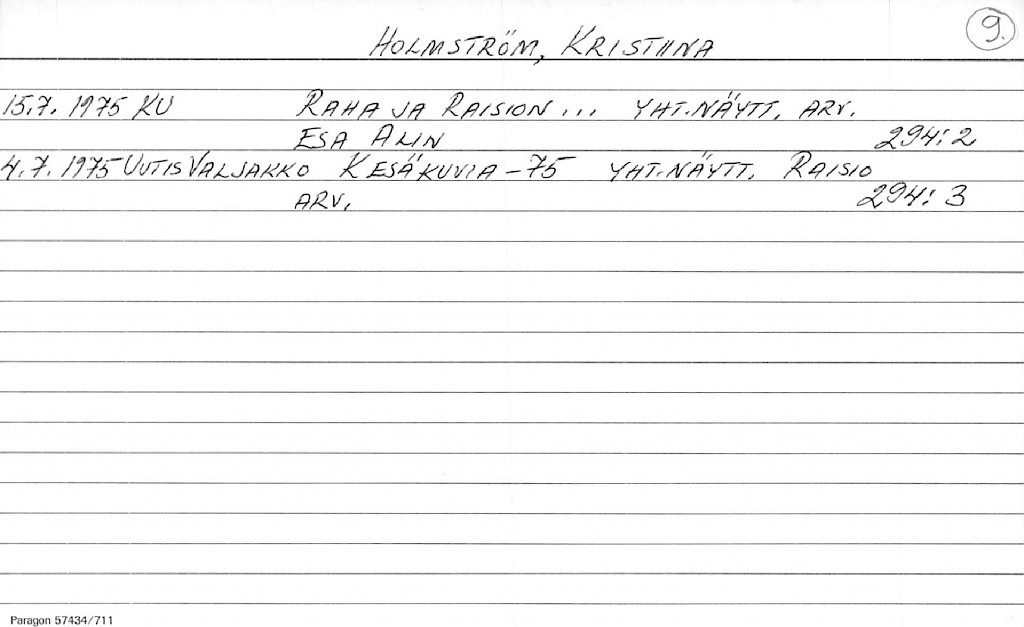 9.
HOLMSTRÖM, KRISTIINA
15.7. 1975 KU RAHA JA RAISION... YHT.NÄYTT. ARV.
ESA ALIN 294:2
4.7. 1975 UUTISVALJAKKO KESÄKUVIA -75 YHT.NÄYTT. RAISIO
ARV. 294:3
Paragon 57434/711